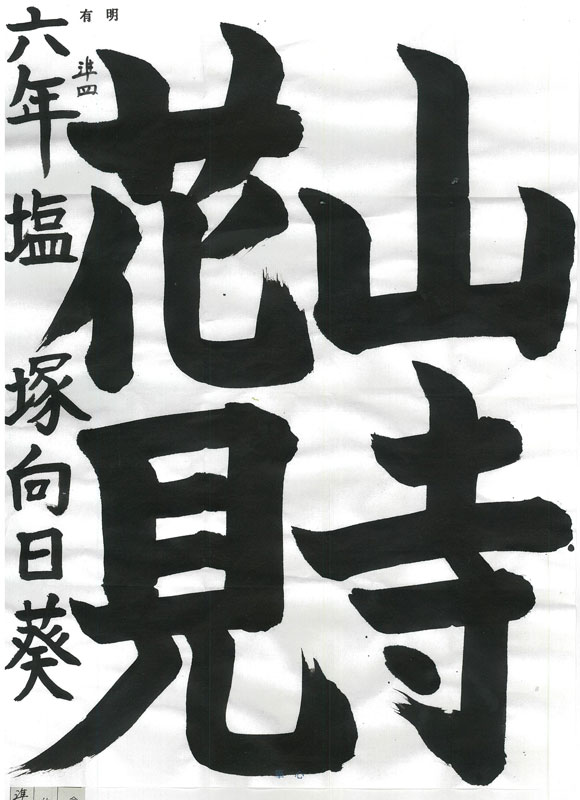 山寺
花見
明有
準四
六年塩塚向日葵
準